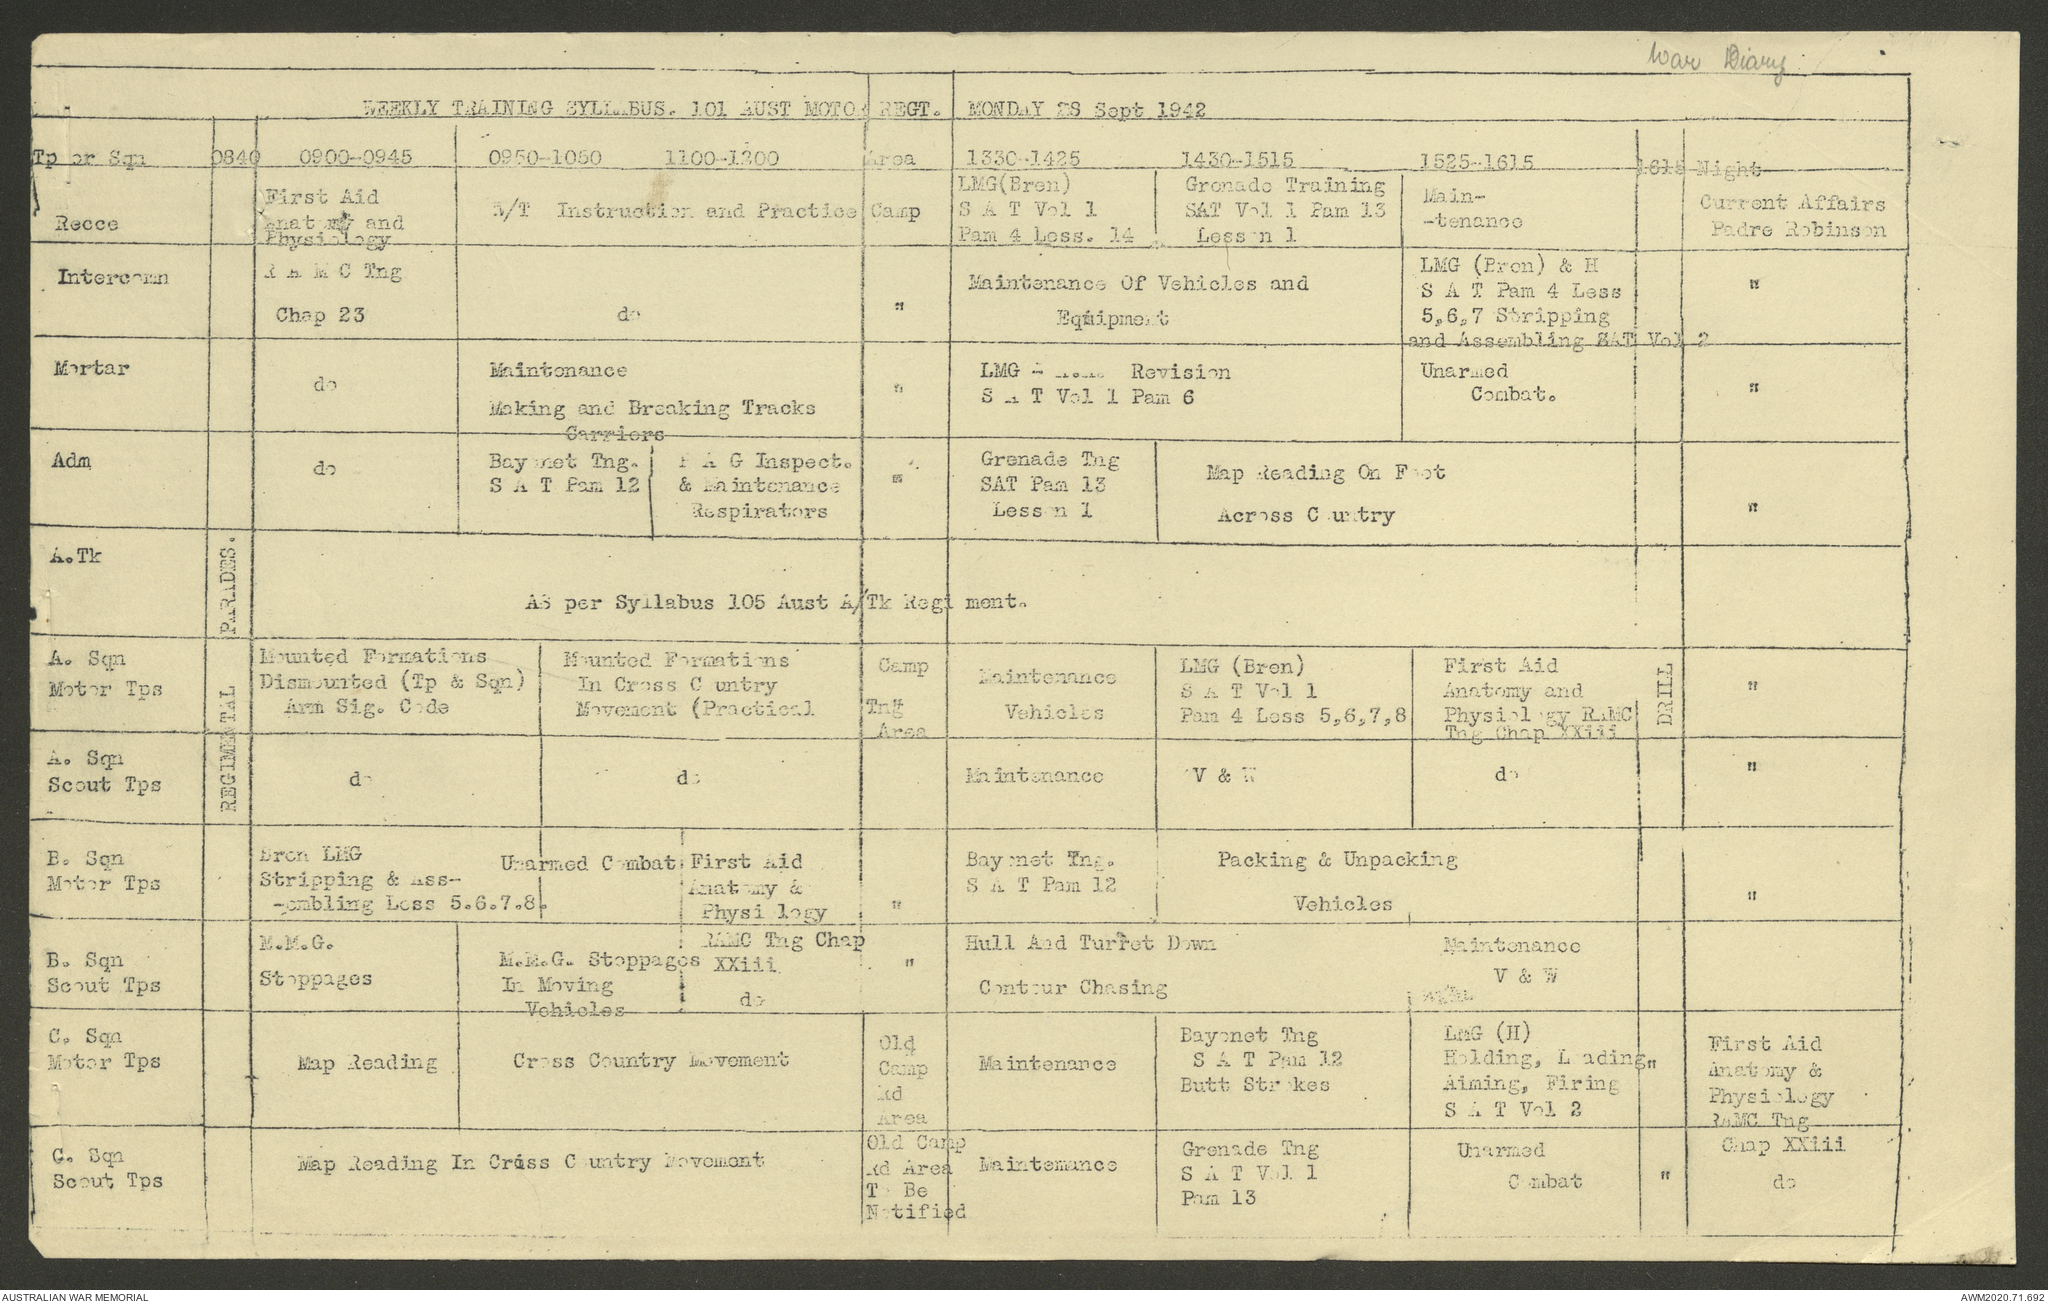 War Diary
WEEKLY TRAINING SYLLABUS. 101 AUST MOTOR REGT. MONDAY 28 Sept 1942
Tp or Sqn 0840 0900-0945 0950-1050 1100-1200 Area 1330-1425 1430-1515 1525-1615 1615 Night
Recce
First Aid
Anatomy and
Physiology
W/T Instruction and Practice
Camp
LMG(Bren)
S A T Vol 1
Pam 4 Less. 14
Grenade Training
SAT Vol 1 Pam 13
Lesson 1
Main-
-tenance
Current Affairs
Padre Robinson
Intercomn
R A M C Tng
Chap 23
do
"
Maintenance Of Vehicles and
Equipment
LMG (Bren) & H
S A T Pam 4 Less
5,6,7 Stripping
and Assembling SAT Vol 2
"
Mortar
do
Maintenance
Making and Breaking Tracks
Carriers
"
LMG - Revision
S A T Vol 1 Pam 6
Unarmed
Combat.
"
Adm
do
Bayonet Tng.
S A T Pam 12
A G Inspect.
& Maintenance
Respirators
"
Grenade Tng
SAT Pam 13
Lesson 1
Map Reading On Foot
Across Country
"
A.Tk
As per Syllabus 105 Aust A/Tk Regiment.
REGIMENTAL PARADES.
A. Sqn
Motor Tps
Mounted Formations
Dismounted (Tp & Sqn)
Arm Sig. Code
Mounted Formations
In Cross Country
Movement (Practical
Camp
Tng
Area
Maintenance
Vehicles
LMG (Bren)
S A T Vol 1
Pam 4 Less 5,6,7,8
First Aid
Anatomy and
Physiology RAMC
Tng Chap XXiii
DRILL
"
A. Sqn
Scout Tps
do
do
Maintenance
V & W
do
"
B. Sqn
Motor Tps
Bren LMG
Stripping & Ass-
-embling Less 5.6.7.8.
Unarmed Combat
First Aid
Anatomy &
Physiology
RAMC Tng Chap
XXiii
"
Bayonet Tng.
S A T Pam 12
Packing & Unpacking
Vehicles
"
B. Sqn
Scout Tps
M.M.G.
Stoppages
M.M.G. Stoppages
In Moving
Vehicles
do
"
Hull And Turret Down
Contour Chasing
Maintenance
V & W
C. Sqn
Motor Tps
Map Reading
Cross Country Movement
Old
Camp
Rd
Area
Maintenance
Bayonet Tng
S A T Pam 12
Butt Strokes
LMG (H)
Holding, Loading,
Aiming, Firing
S A T Vol 2
"
First Aid
Anatomy &
Physiology
RAMC Tng
Chap XXiii
C. Sqn
Scout Tps
Map Reading In Cross Country Movement
Old Camp
Rd Area
To Be
Notified
Maintenance
Grenade Tng
S A T Vol 1
Pam 13
Unarmed
Combat
"
do
AUSTRALIAN WAR MEMORIAL
AWM2020.71.692